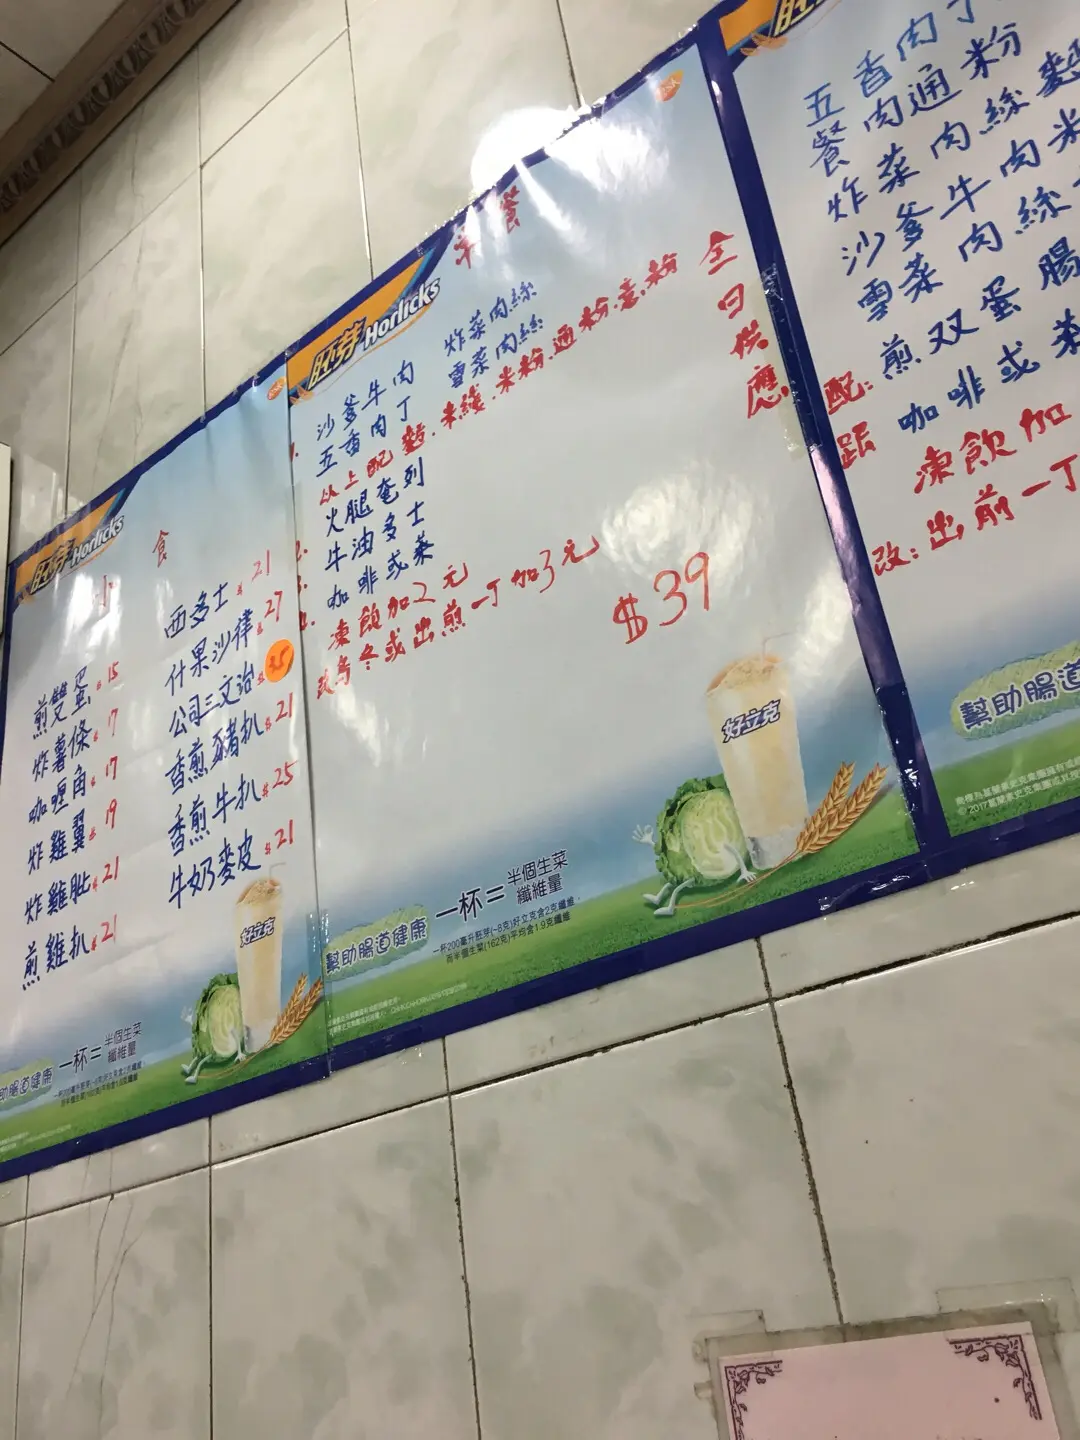 胚芽 Horlicks
小食
煎雙蛋 $15
炸薯條 $7
咖喱角 $17
炸雞翼 $19
炸雞肶 $21
煎雞扒 $21
西多士 $21
什果沙律 $27
公司三文治 $35
香煎豬扒 $21
香煎牛扒 $25
牛奶麥皮 $21
好立克
助腸道健康
一杯=半個生菜
纖維量
胚芽 Horlicks
餐
全日供應
沙爹牛肉 炸菜肉絲
五香肉丁 雪菜肉絲
以上配麵.米線.米粉.通粉.意粉
火腿奄列
牛油多士
咖啡或茶
凍飲加2元
改烏冬或出煎一丁加3元
$39
好立克
幫助腸道健康
一杯=半個生菜
纖維量
一杯200毫升胚芽(~8克)好立克含2克纖維，
而半個生菜(162克)平均含1.9克纖維
五香肉丁
餐肉通粉
炸菜肉絲麵
沙爹牛肉米
雪菜肉絲
配:煎双蛋腸
跟 咖啡或茶
凍飲加
改:出前一丁
幫助腸道